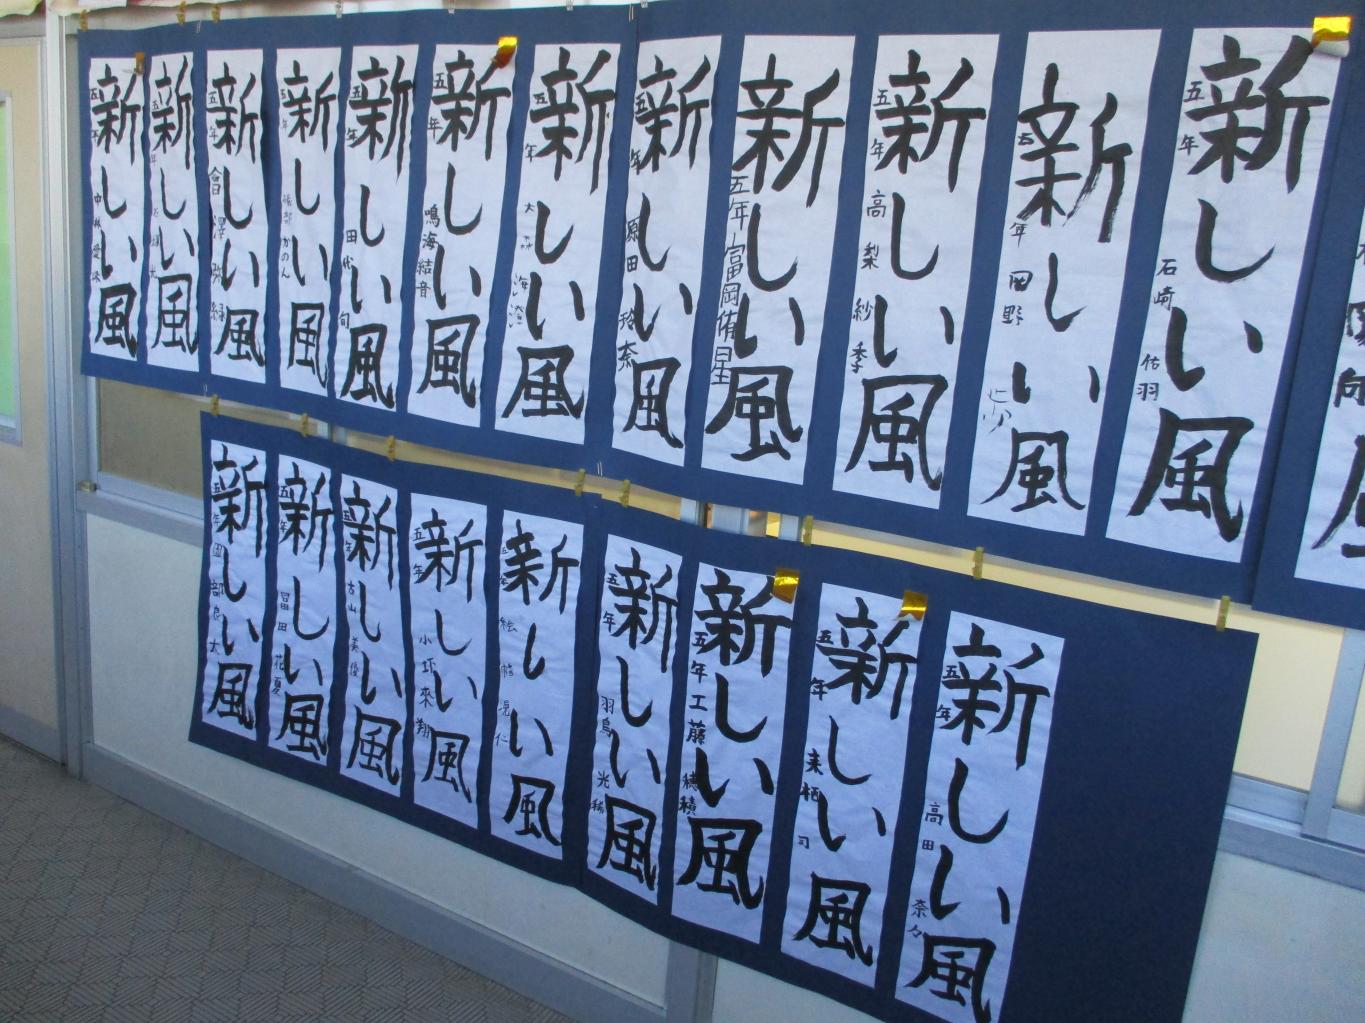 新しい風
五年
新しい風
五年
新しい風
五年
新しい風
五年 磯部かのん
新しい風
五年 田代 旬
新しい風
五年 鳴海結音
新しい風
五年 大森
新しい風
五年 原田 玲奈
新しい風
五年 富岡侑星
新しい風
五年 高梨 紗季
新しい風
五年 岡野
新しい風
五年 石崎 佑羽
新しい風
五年
新しい風
五年 冨田 花夏
新しい風
五年 古山 美優
新しい風
五年 小 來翔
新しい風
五年
新しい風
五年 羽鳥 光稀
新しい風
五年 工藤 穂積
新しい風
五年 来栖 司
新しい風
五年 高田 奈々